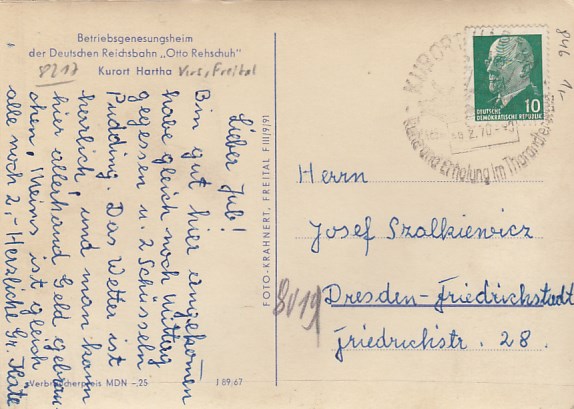 Betriebsgenesungsheim
der Deutschen Reichsbahn „Otto Rehschuh"
8217
Kurort Hartha Krs. Freital
Lieber Jul!
Bin gut hier angekommen
habe gleich noch Mittag
gegessen u. 2 Schüsseln
Pudding. Das Wetter ist
herrlich, und man kann
hier allerhand Geld gebrau-
chen, meins ist gleich
alle noch 2,- Herzliche Gr. Käte
Verbraucherpreis MDN -,25
I 89/67
FOTO-KRAHNERT, FREITAL F III/9/91
846 1,-
KURORT
Ruhe und Erholung im Tharandter
DEUTSCHE
DEMOKRATISCHE REPUBLIK
10
Herrn
Josef Szalkiewicz
8019
Dresden-Friedrichstadt
Friedrichstr. 28.